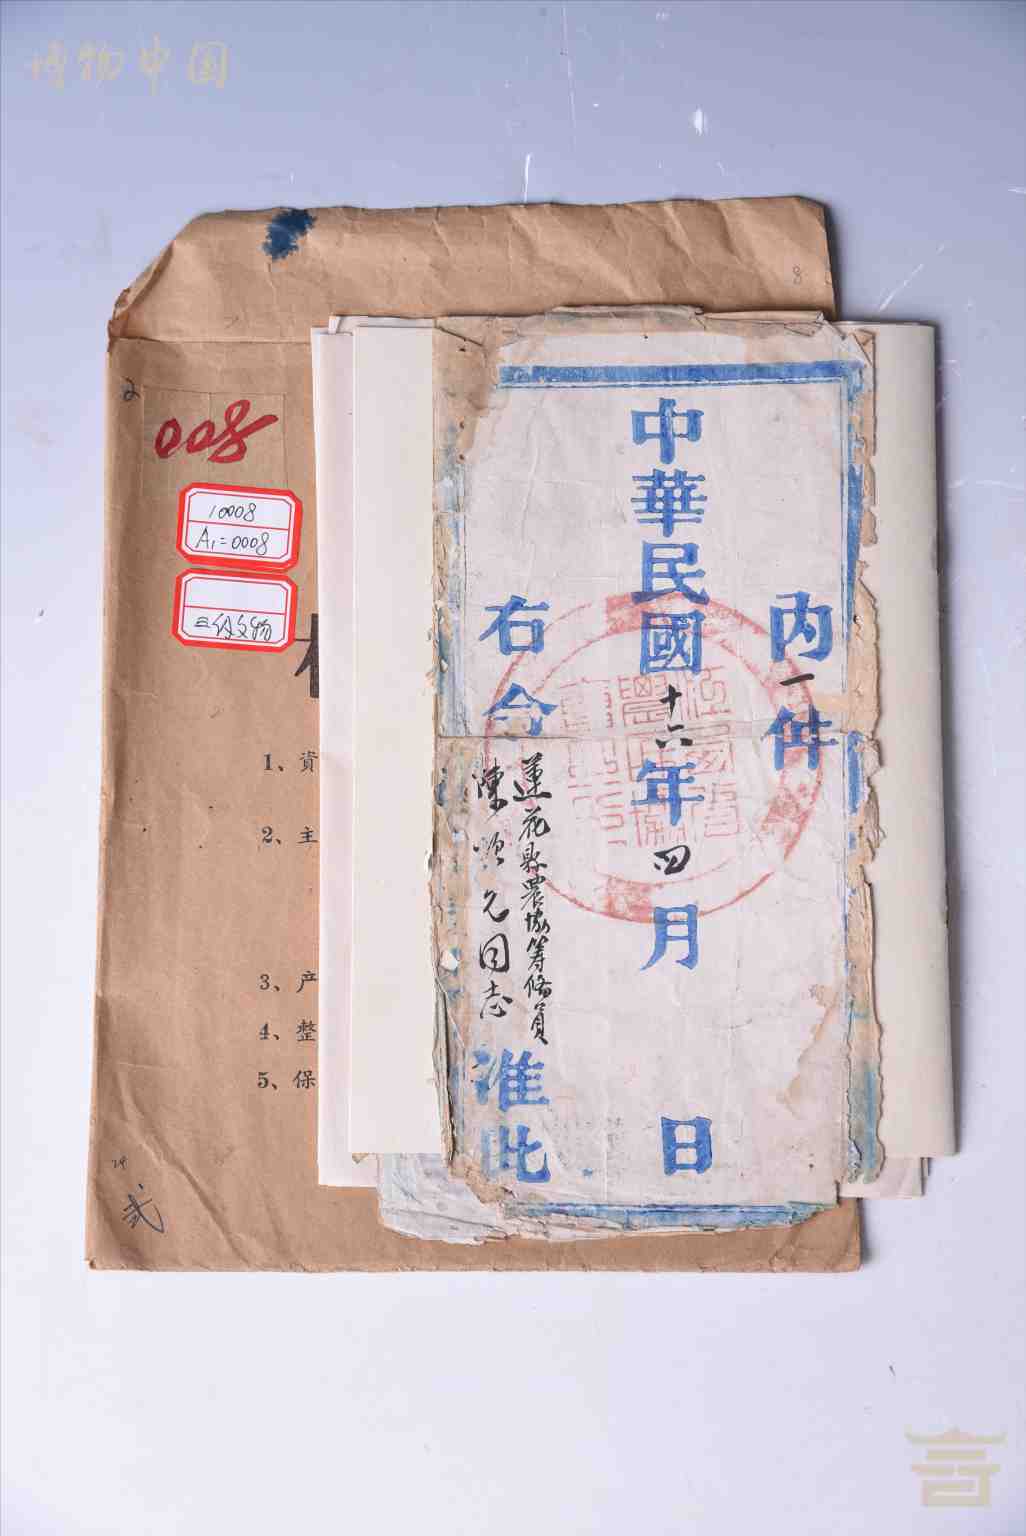 博物中国
8
2
008
10008
A1=0008
三级文物
1、資
2、主
3、产
4、整
5、保
24
弍
內一件
中華民國十六年四月 日
右令
蓮花縣農協籌俻員
陳順元同志
准此